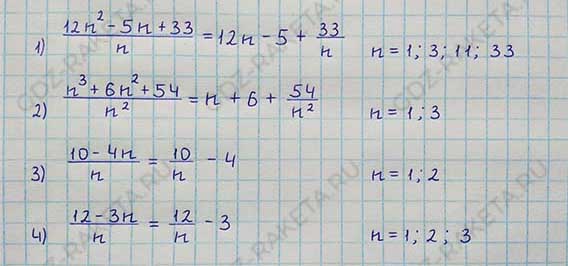 1) (12n² - 5n + 33)/n = 12n - 5 + 33/n n = 1; 3; 11; 33
2) (n³ + 6n² + 54)/n² = n + 6 + 54/n² n = 1; 3
3) (10 - 4n)/n = 10/n - 4 n = 1; 2
4) (12 - 3n)/n = 12/n - 3 n = 1; 2; 3
GDZ-RAKETA.RU